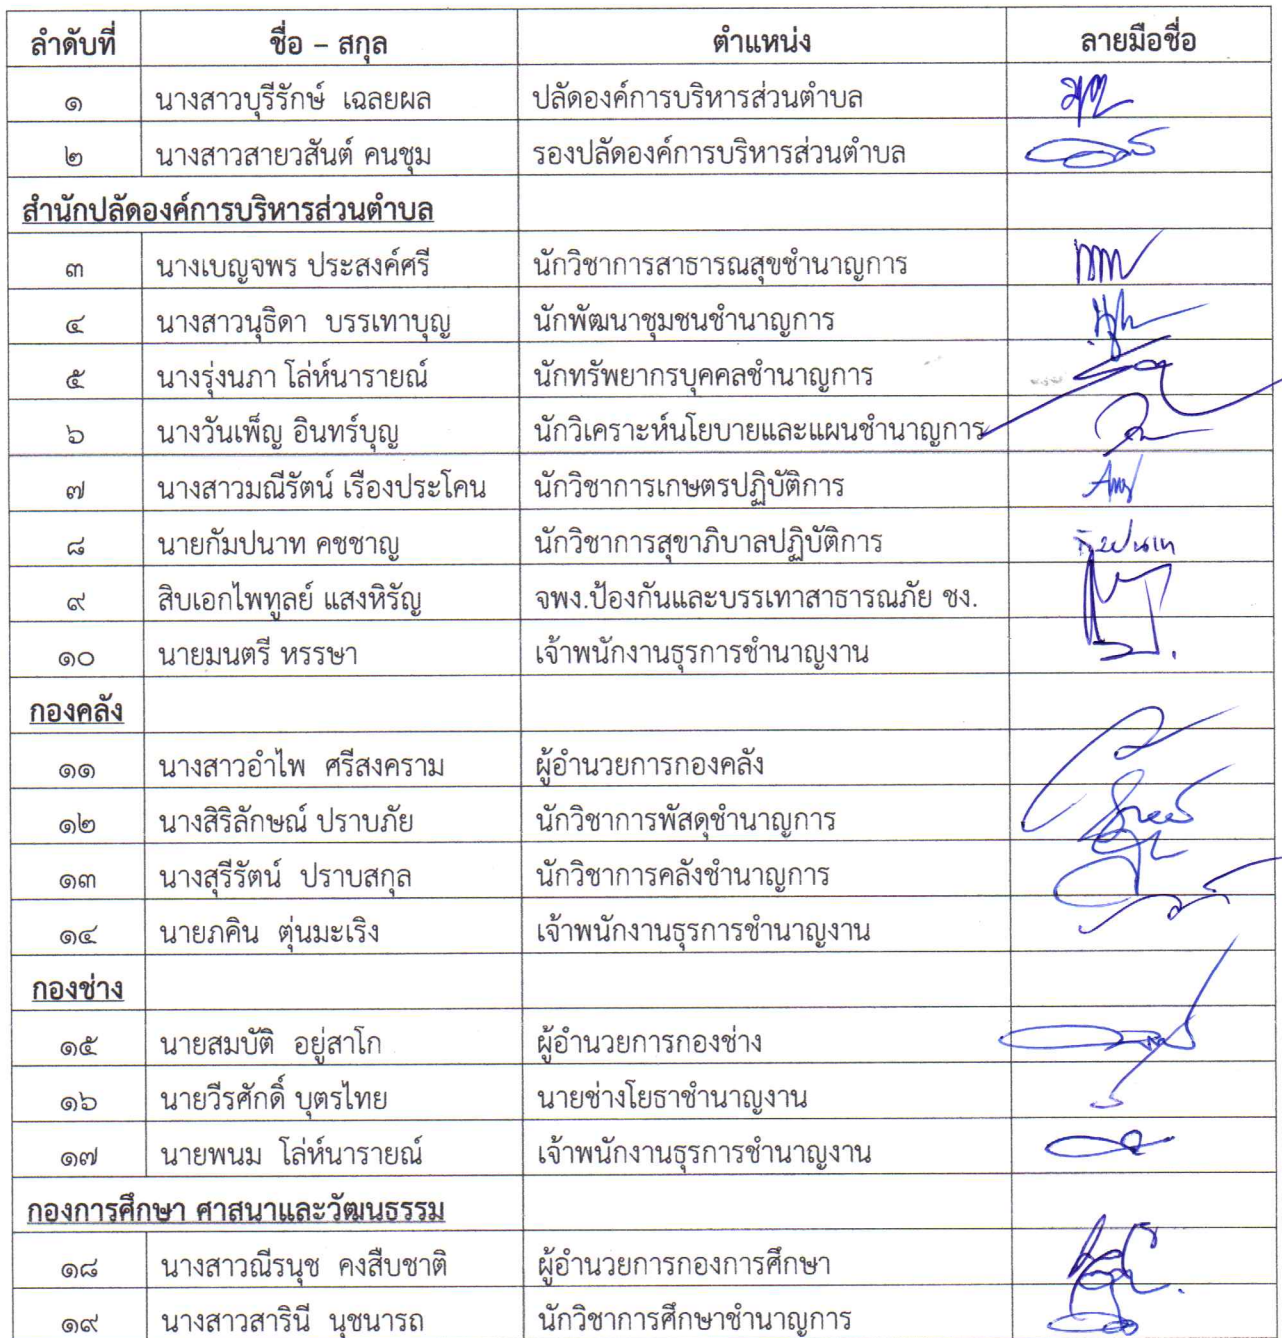 ลำดับที่ ชื่อ – สกุล ตำแหน่ง ลายมือชื่อ
๑ นางสาวบุรีรักษ์ เฉลยผล ปลัดองค์การบริหารส่วนตำบล
๒ นางสาวสายวสันต์ คนชุม รองปลัดองค์การบริหารส่วนตำบล
สำนักปลัดองค์การบริหารส่วนตำบล
๓ นางเบญจพร ประสงค์ศรี นักวิชาการสาธารณสุขชำนาญการ
๔ นางสาวนุธิดา บรรเทาบุญ นักพัฒนาชุมชนชำนาญการ
๕ นางรุ่งนภา โล่ห์นารายณ์ นักทรัพยากรบุคคลชำนาญการ
๖ นางวันเพ็ญ อินทร์บุญ นักวิเคราะห์นโยบายและแผนชำนาญการ
๗ นางสาวมณีรัตน์ เรืองประโคน นักวิชาการเกษตรปฏิบัติการ
๘ นายกัมปนาท คชชาญ นักวิชาการสุขาภิบาลปฏิบัติการ กัมปนาท
๙ สิบเอกไพฑูลย์ แสงหิรัญ จพง.ป้องกันและบรรเทาสาธารณภัย ชง.
๑๐ นายมนตรี หรรษา เจ้าพนักงานธุรการชำนาญงาน
กองคลัง
๑๑ นางสาวอำไพ ศรีสงคราม ผู้อำนวยการกองคลัง
๑๒ นางสิริลักษณ์ ปราบภัย นักวิชาการพัสดุชำนาญการ
๑๓ นางสุรีรัตน์ ปราบสกุล นักวิชาการคลังชำนาญการ
๑๔ นายภคิน ตุ่นมะเริง เจ้าพนักงานธุรการชำนาญงาน
กองช่าง
๑๕ นายสมบัติ อยู่สาโก ผู้อำนวยการกองช่าง
๑๖ นายวีรศักดิ์ บุตรไทย นายช่างโยธาชำนาญงาน
๑๗ นายพนม โล่ห์นารายณ์ เจ้าพนักงานธุรการชำนาญงาน
กองการศึกษา ศาสนาและวัฒนธรรม
๑๘ นางสาวณีรนุช คงสืบชาติ ผู้อำนวยการกองการศึกษา
๑๙ นางสาวสารินี นุชนารถ นักวิชาการศึกษาชำนาญการ